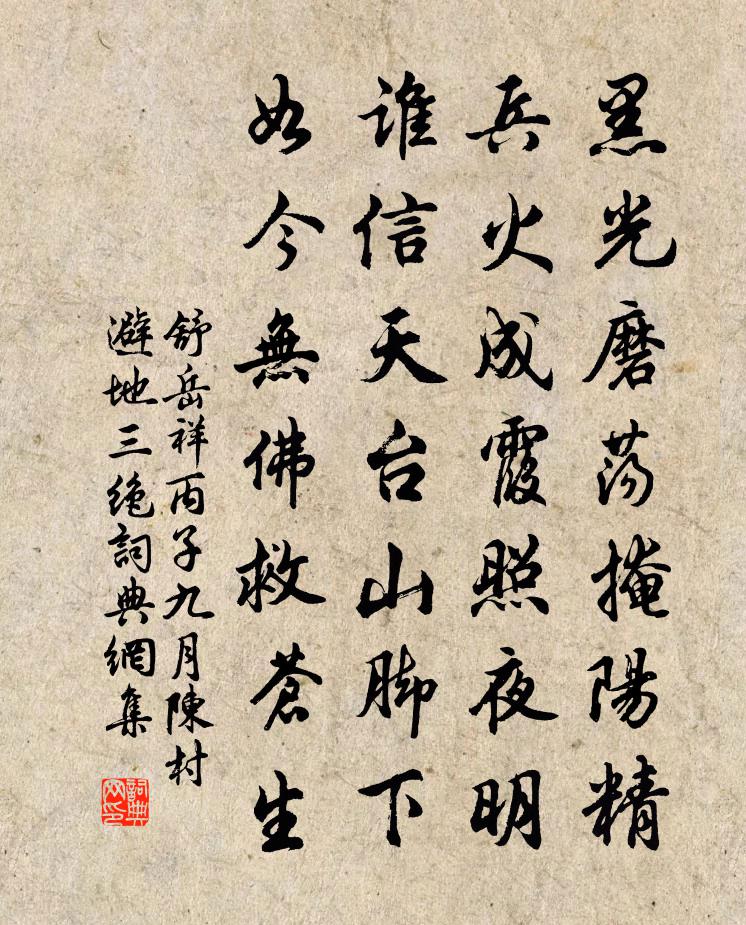 黑光磨荡掩陽精
兵火成霞照夜明
誰信天台山脚下
如今無佛救蒼生
舒岳祥丙子九月陳村
避地三絶詞典網集
詞典
网印